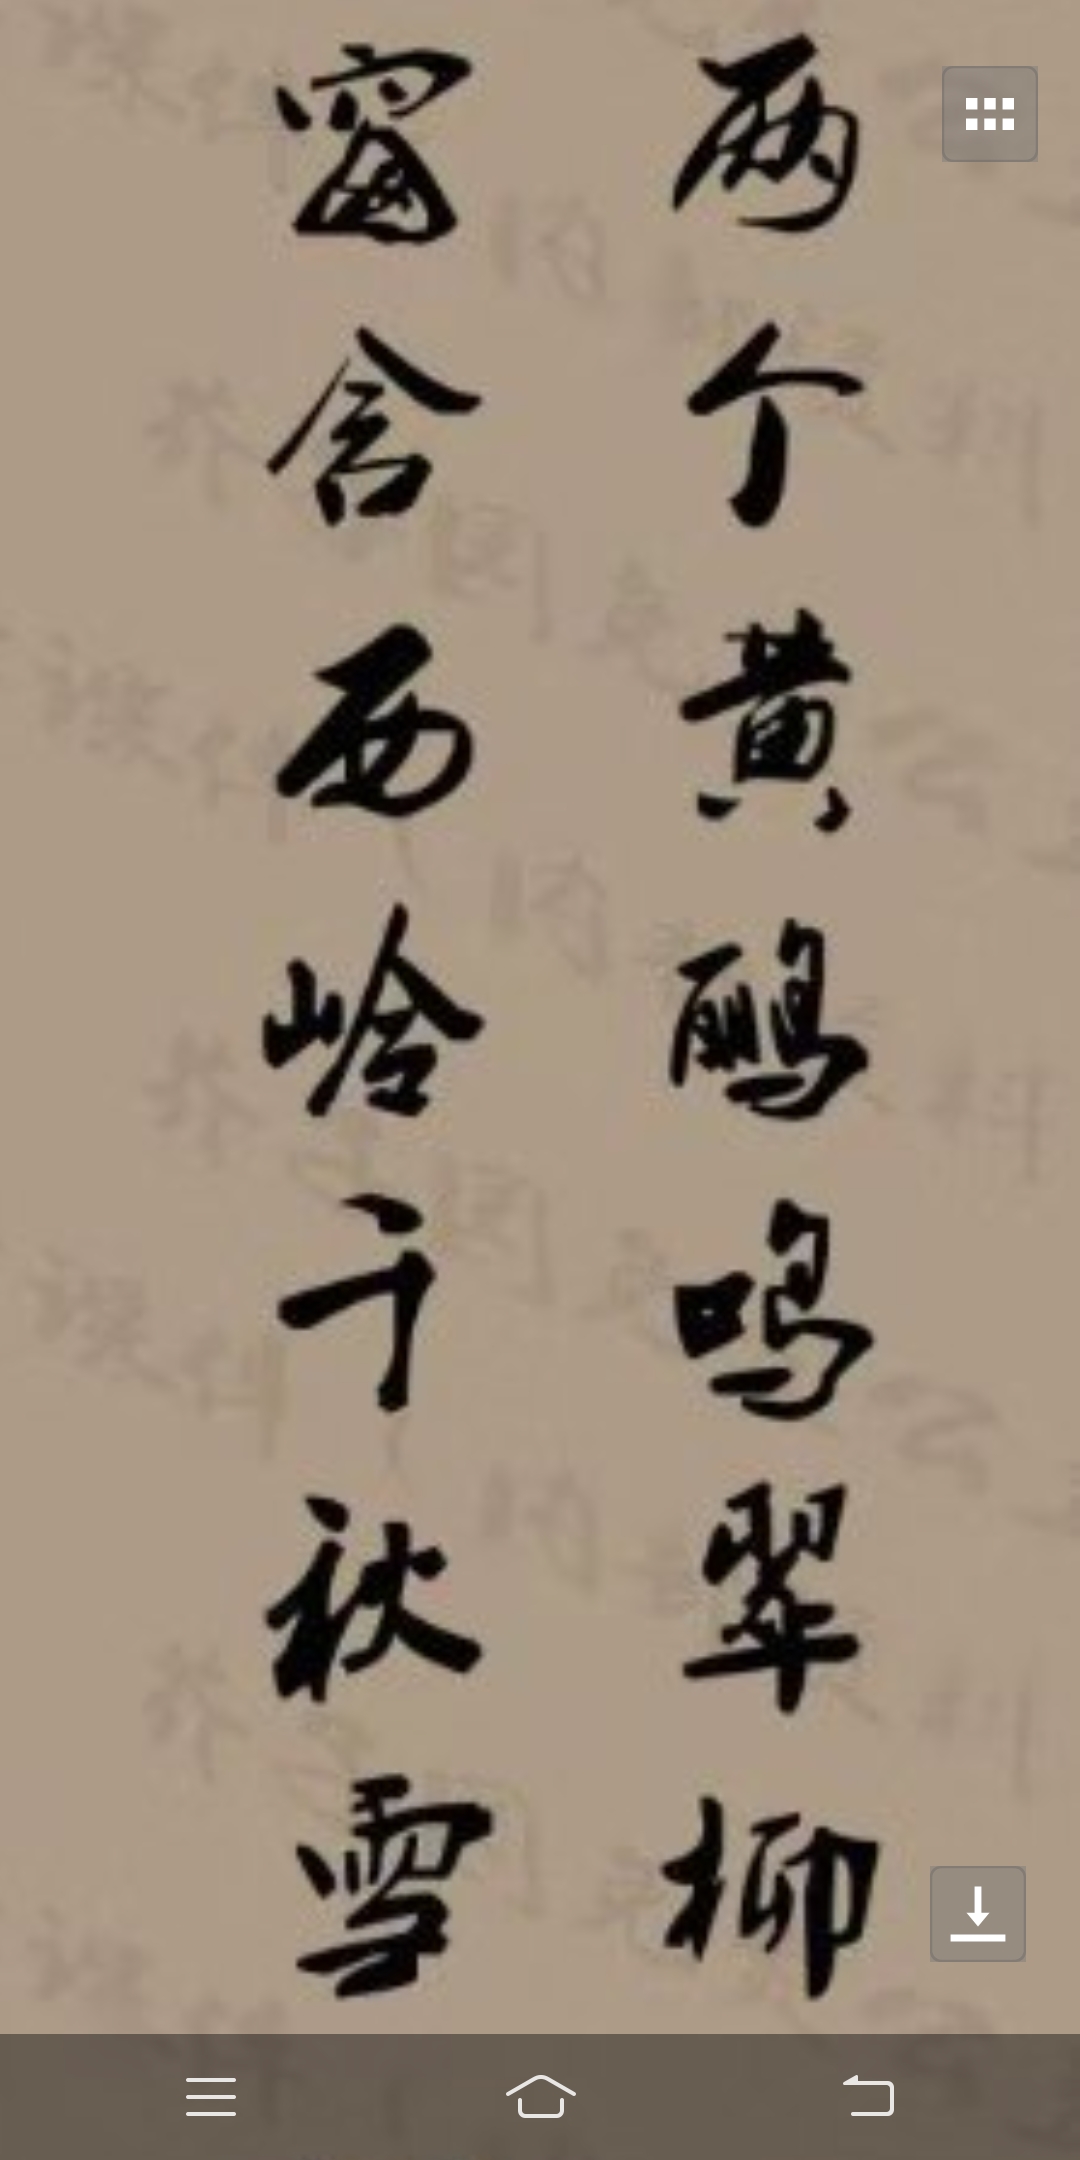 兩个黄鸝鳴翠柳
窗含西岭千秋雪